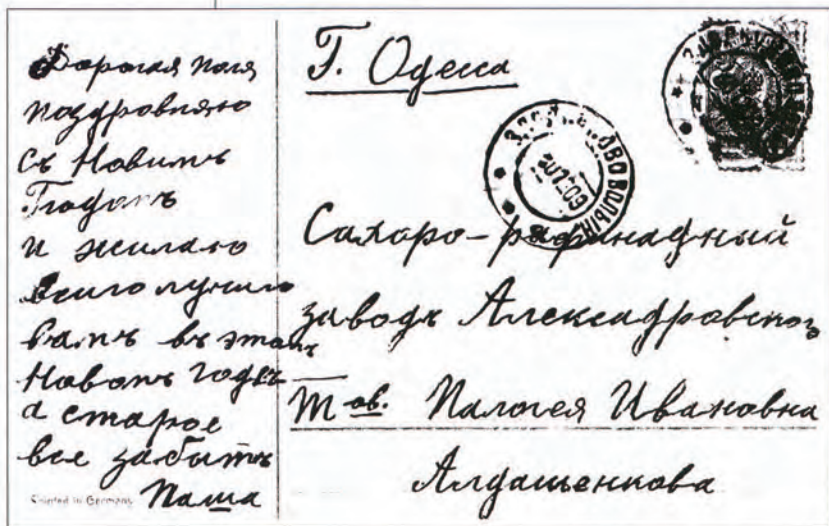 Дорогая поля
поздровляю
съ Новимъ
Годомъ
и жилаю
всиго лучшио
вамъ въ этомъ
Новомъ годѣ
а старое
все забытъ
Паша
Printed in Germany
Г. Одесса
Сахаро-рафинадный
заводъ Алексадровского
Тов. Палогея Ивановна
Алдашенкова